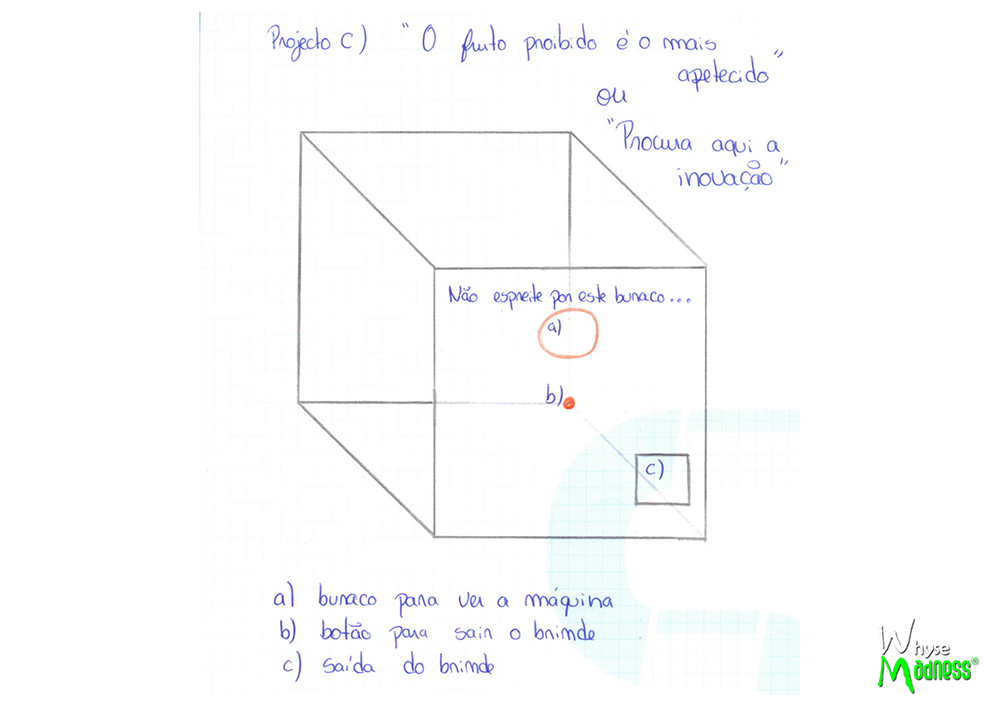 Projecto C) "O fruto proibido é o mais
apetecido"
ou
"Procura aqui a
inovação"
Não espreite por este buraco...
a)
b)
c)
a) buraco para ver a máquina
b) botão para sair o brinde
c) saída do brinde
Whyse
Madness®